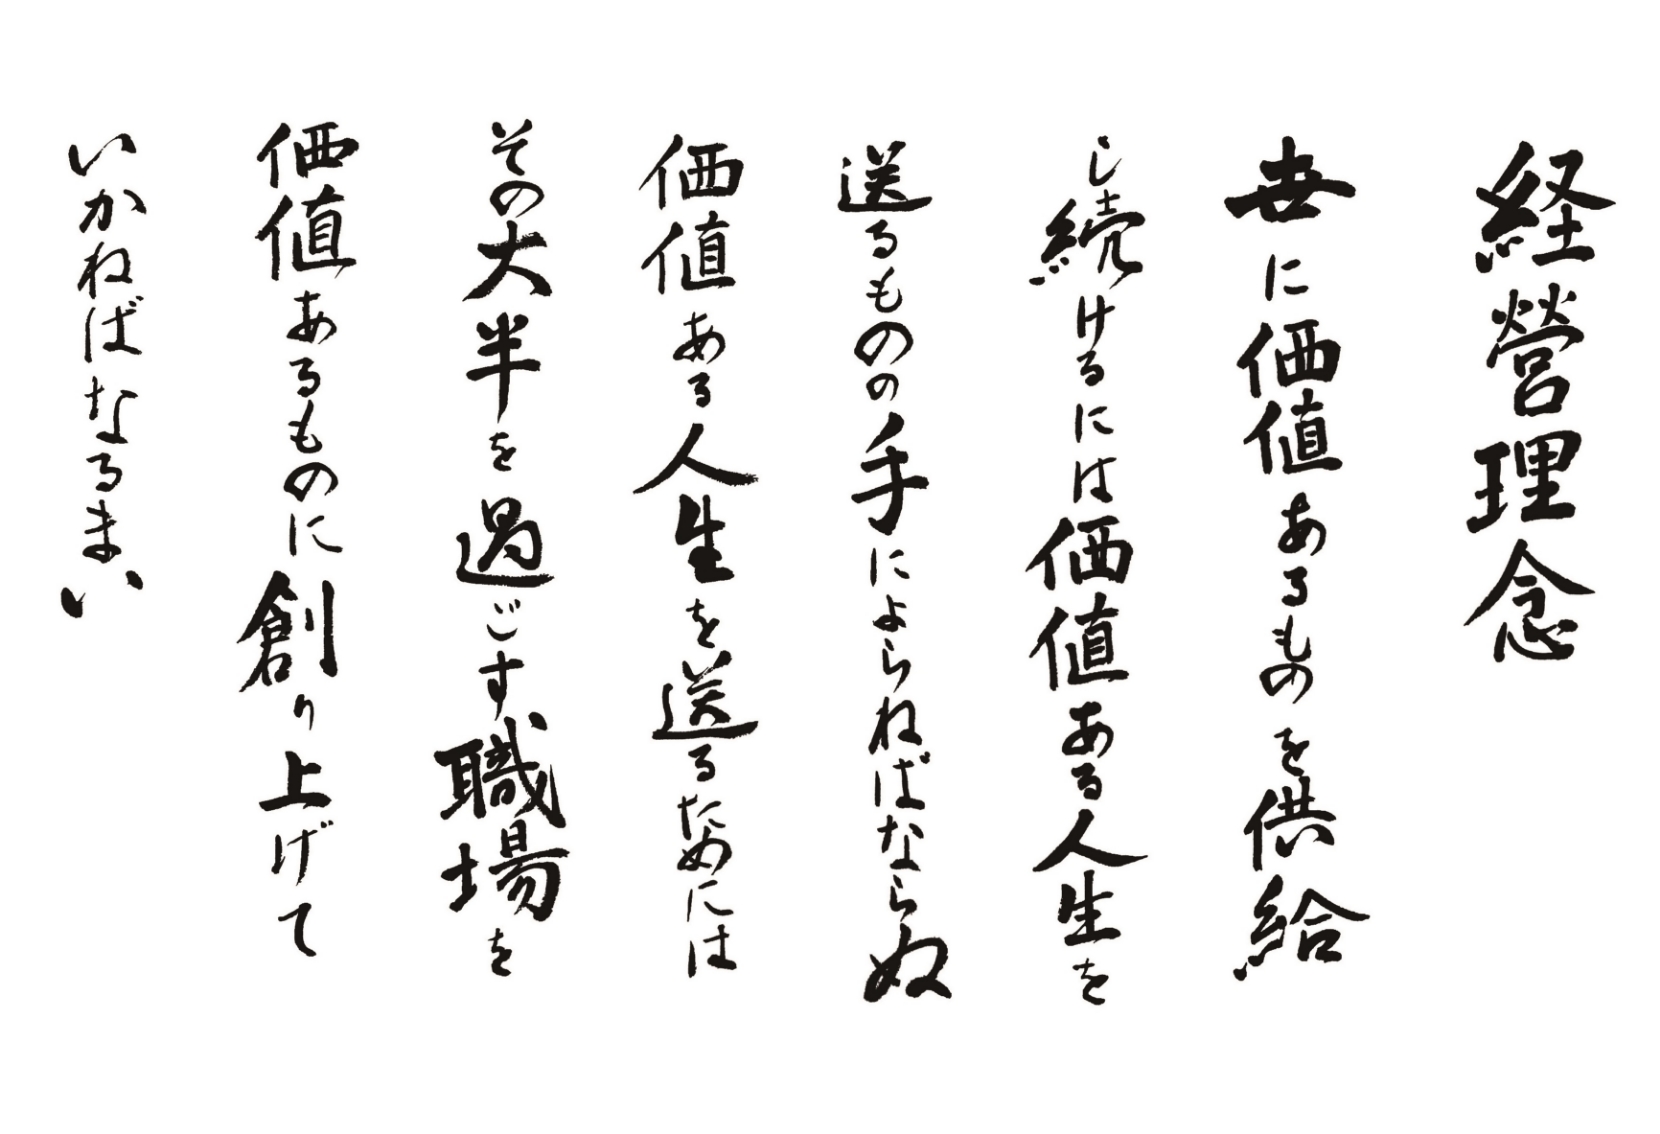 経営理念
世に価値あるものを供給
し続けるには価値ある人生を
送るものの手によらねばならぬ
価値ある人生を送るためには
その大半を過ごす職場を
価値あるものに創り上げて
いかねばなるまい